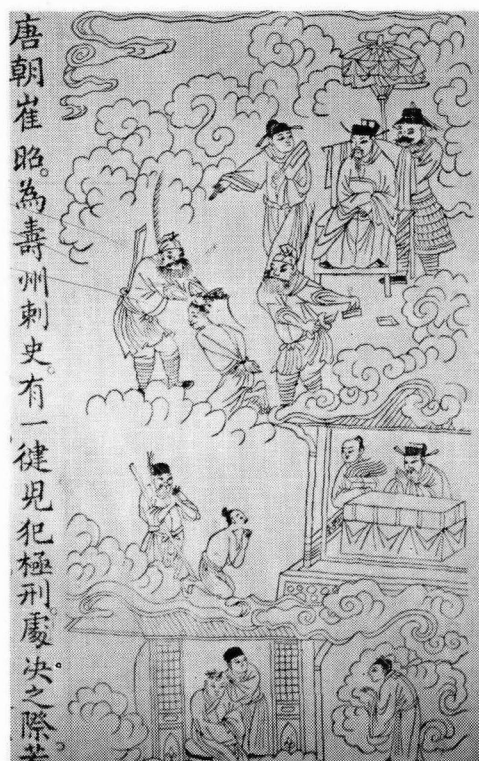 唐朝崔昭。為壽州刺史。有一健児犯極刑。處決之際。若